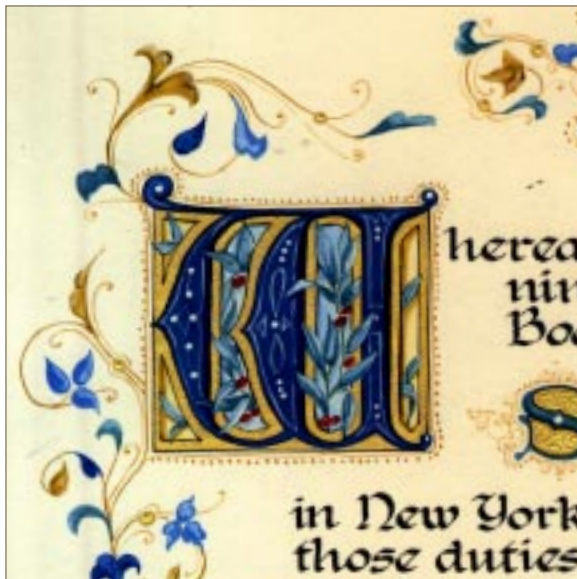 W
herea
nin
Boa
S
in New York
those duties